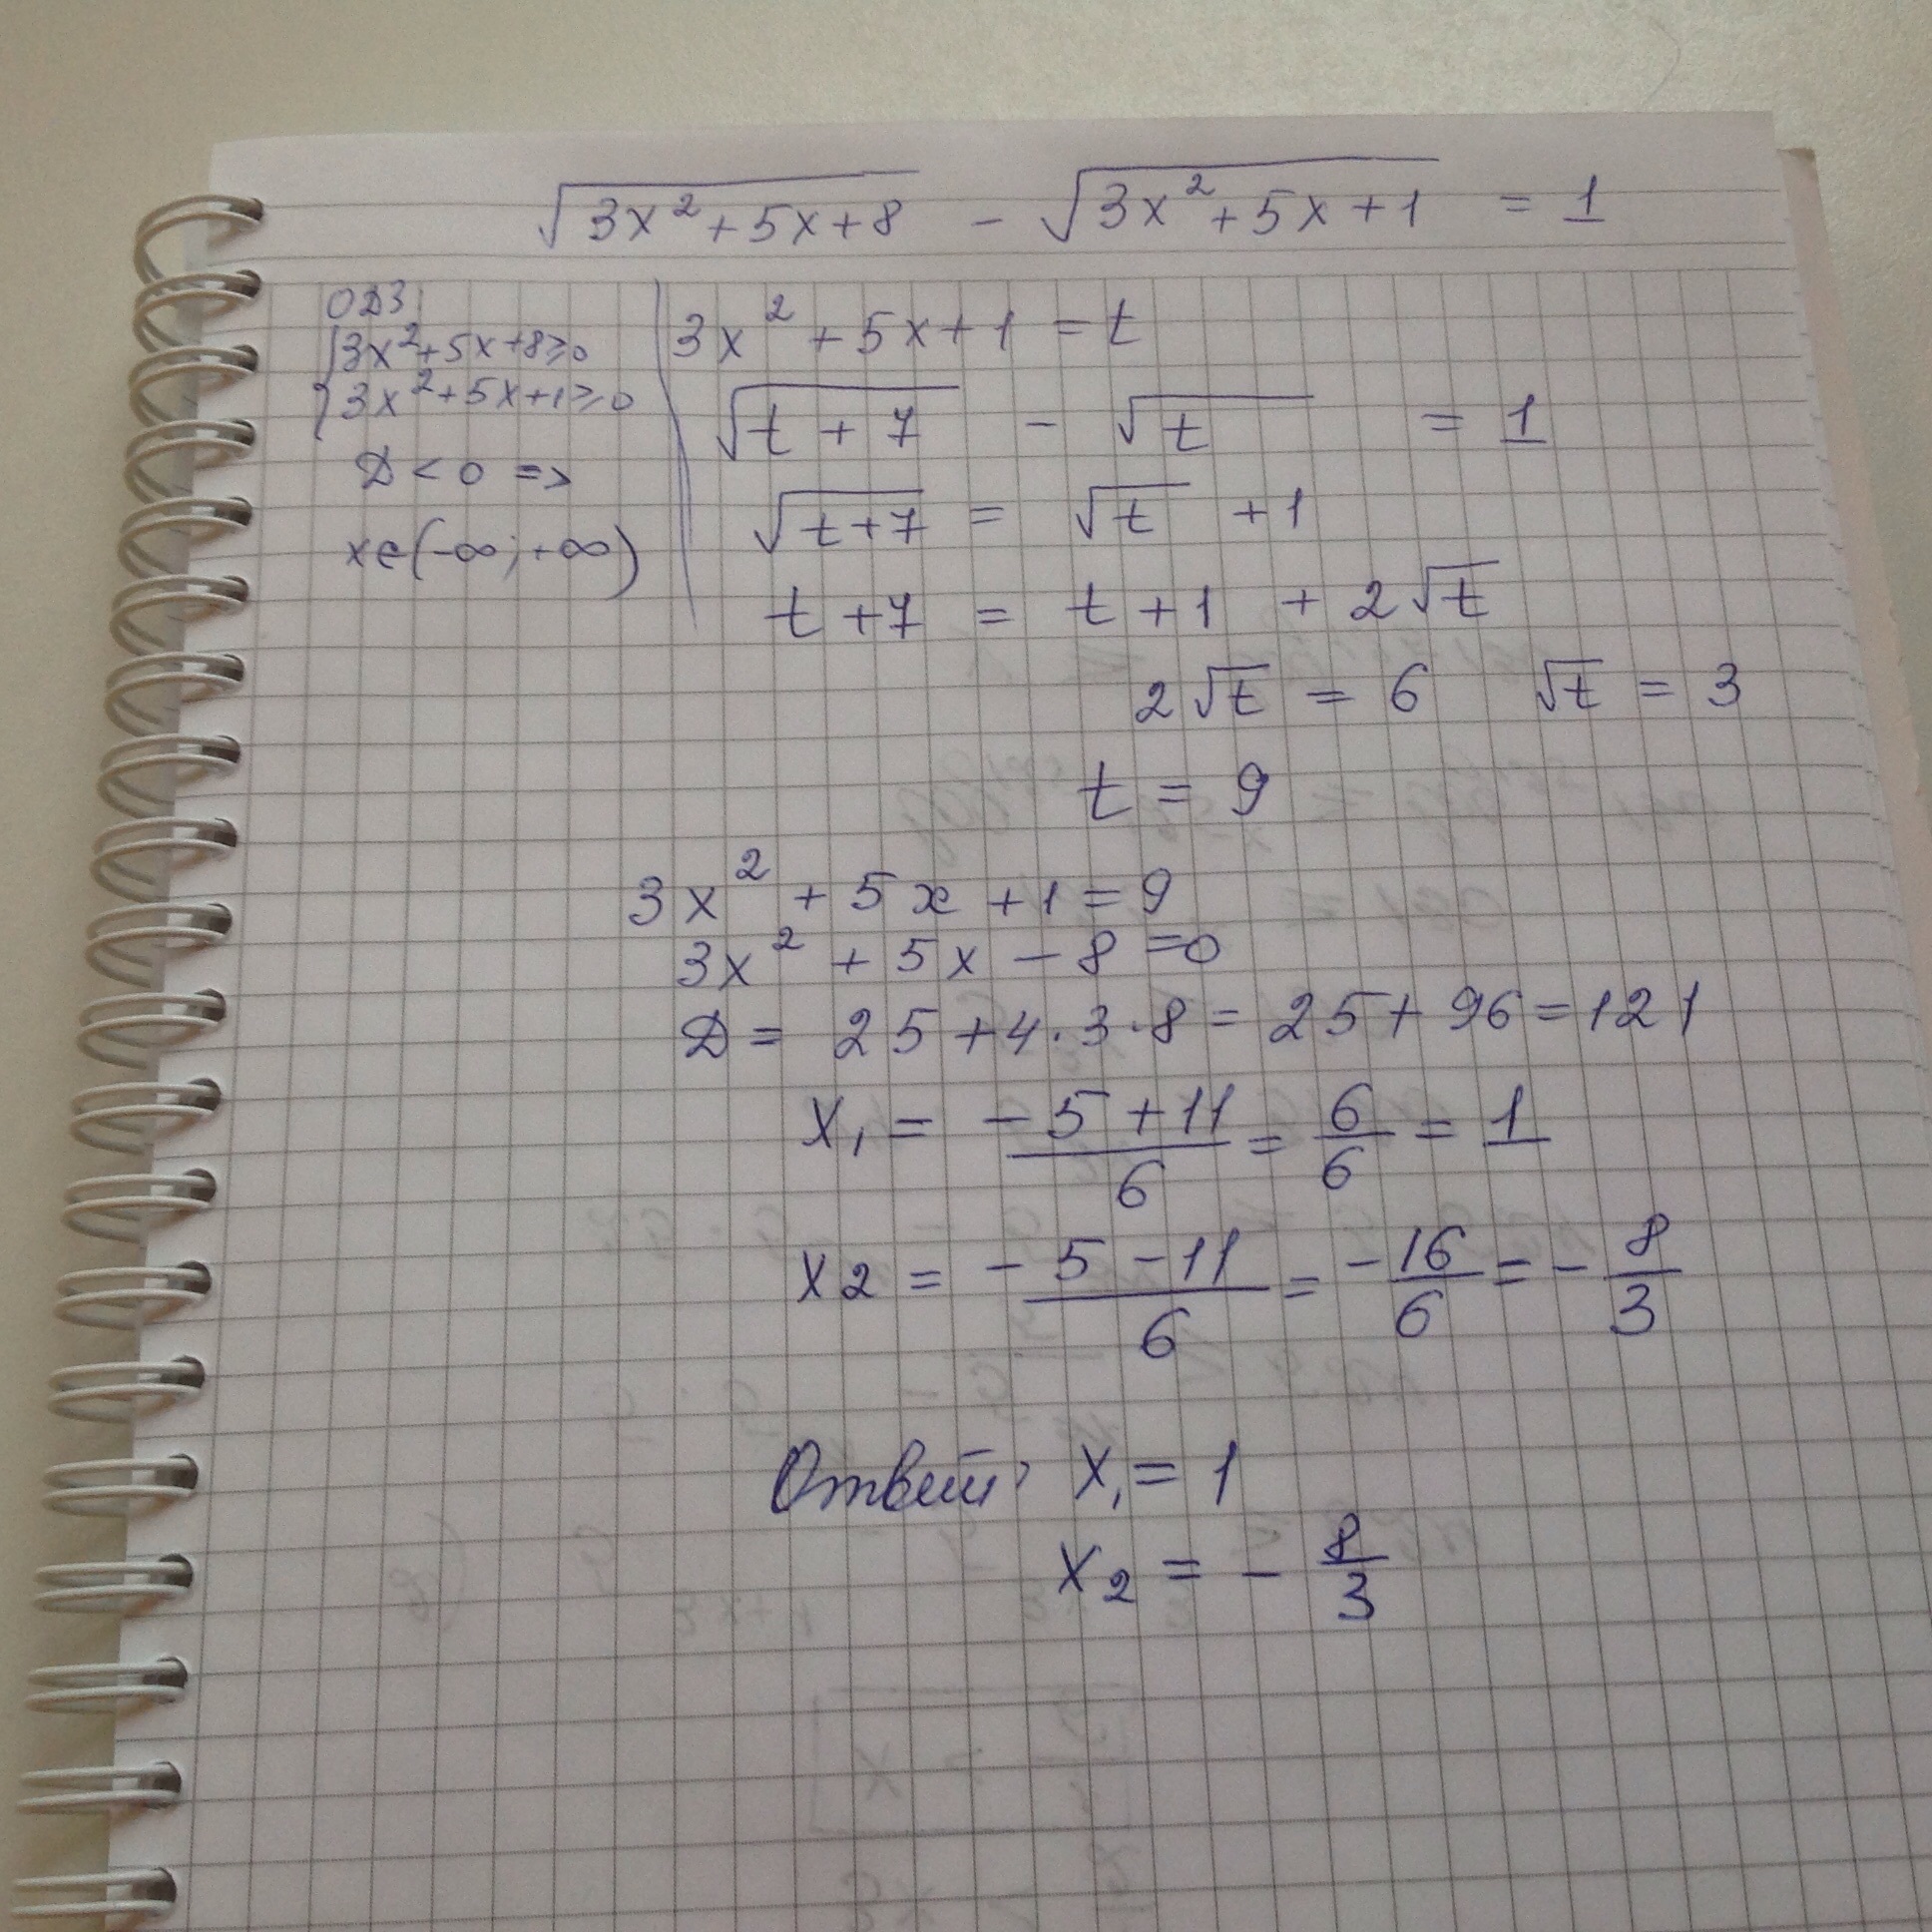 √(3x² + 5x + 8) - √(3x² + 5x + 1) = 1
ОДЗ:
{3x² + 5x + 8 ≥ 0
3x² + 5x + 1 ≥ 0
D < 0 =>
x ∈ (-∞; +∞)
3x² + 5x + 1 = t
√(t + 7) - √t = 1
√(t + 7) = √t + 1
t + 7 = t + 1 + 2√t
2√t = 6 √t = 3
t = 9
3x² + 5x + 1 = 9
3x² + 5x - 8 = 0
D = 25 + 4 · 3 · 8 = 25 + 96 = 121
x₁ = (-5 + 11)/6 = 6/6 = 1
x₂ = (-5 - 11)/6 = -16/6 = -8/3
Ответ: x₁ = 1
x₂ = -8/3